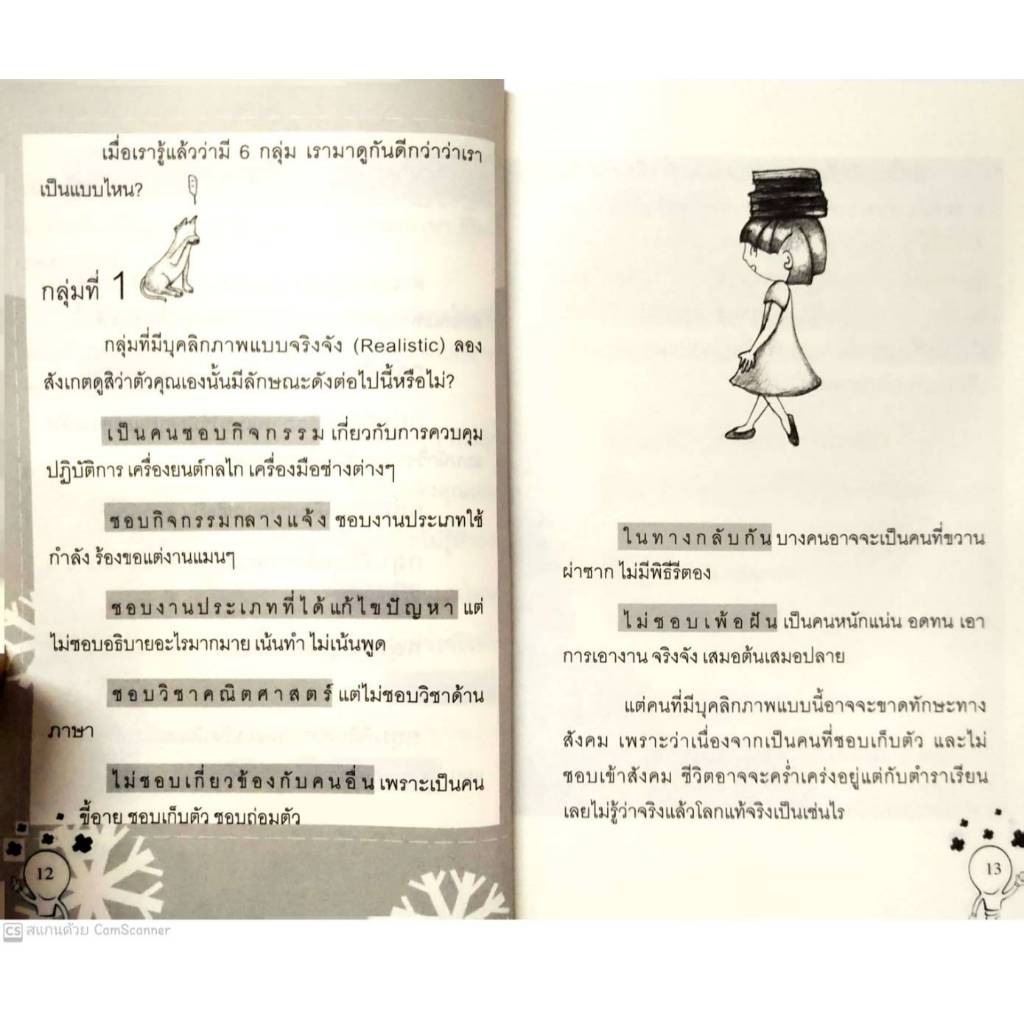 เมื่อเรารู้แล้วว่ามี 6 กลุ่ม เรามาดูกันดีกว่าว่าเรา
เป็นแบบไหน?
กลุ่มที่ 1
กลุ่มที่มีบุคลิกภาพแบบจริงจัง (Realistic) ลอง
สังเกตดูสิว่าตัวคุณเองนั้นมีลักษณะดังต่อไปนี้หรือไม่?
เป็นคนชอบกิจกรรม เกี่ยวกับการควบคุม
ปฏิบัติการ เครื่องยนต์กลไก เครื่องมือช่างต่างๆ
ชอบกิจกรรมกลางแจ้ง ชอบงานประเภทใช้
กำลัง ร้องขอแต่งานแมนๆ
ชอบงานประเภทที่ได้แก้ไขปัญหา แต่
ไม่ชอบอธิบายอะไรมากมาย เน้นทำ ไม่เน้นพูด
ชอบวิชาคณิตศาสตร์ แต่ไม่ชอบวิชาด้าน
ภาษา
ไม่ชอบเกี่ยวข้องกับคนอื่น เพราะเป็นคน
ขี้อาย ชอบเก็บตัว ชอบถ่อมตัว
12
ในทางกลับกัน บางคนอาจจะเป็นคนที่ขวาน
ผ่าซาก ไม่มีพิธีรีตอง
ไม่ชอบเพ้อฝัน เป็นคนหนักแน่น อดทน เอา
การเอางาน จริงจัง เสมอต้นเสมอปลาย
แต่คนที่มีบุคลิกภาพแบบนี้อาจจะขาดทักษะทาง
สังคม เพราะว่าเนื่องจากเป็นคนที่ชอบเก็บตัว และไม่
ชอบเข้าสังคม ชีวิตอาจจะคร่ำเคร่งอยู่แต่กับตำราเรียน
เลยไม่รู้ว่าจริงแล้วโลกแท้จริงเป็นเช่นไร
13
CS สแกนด้วย CamScanner